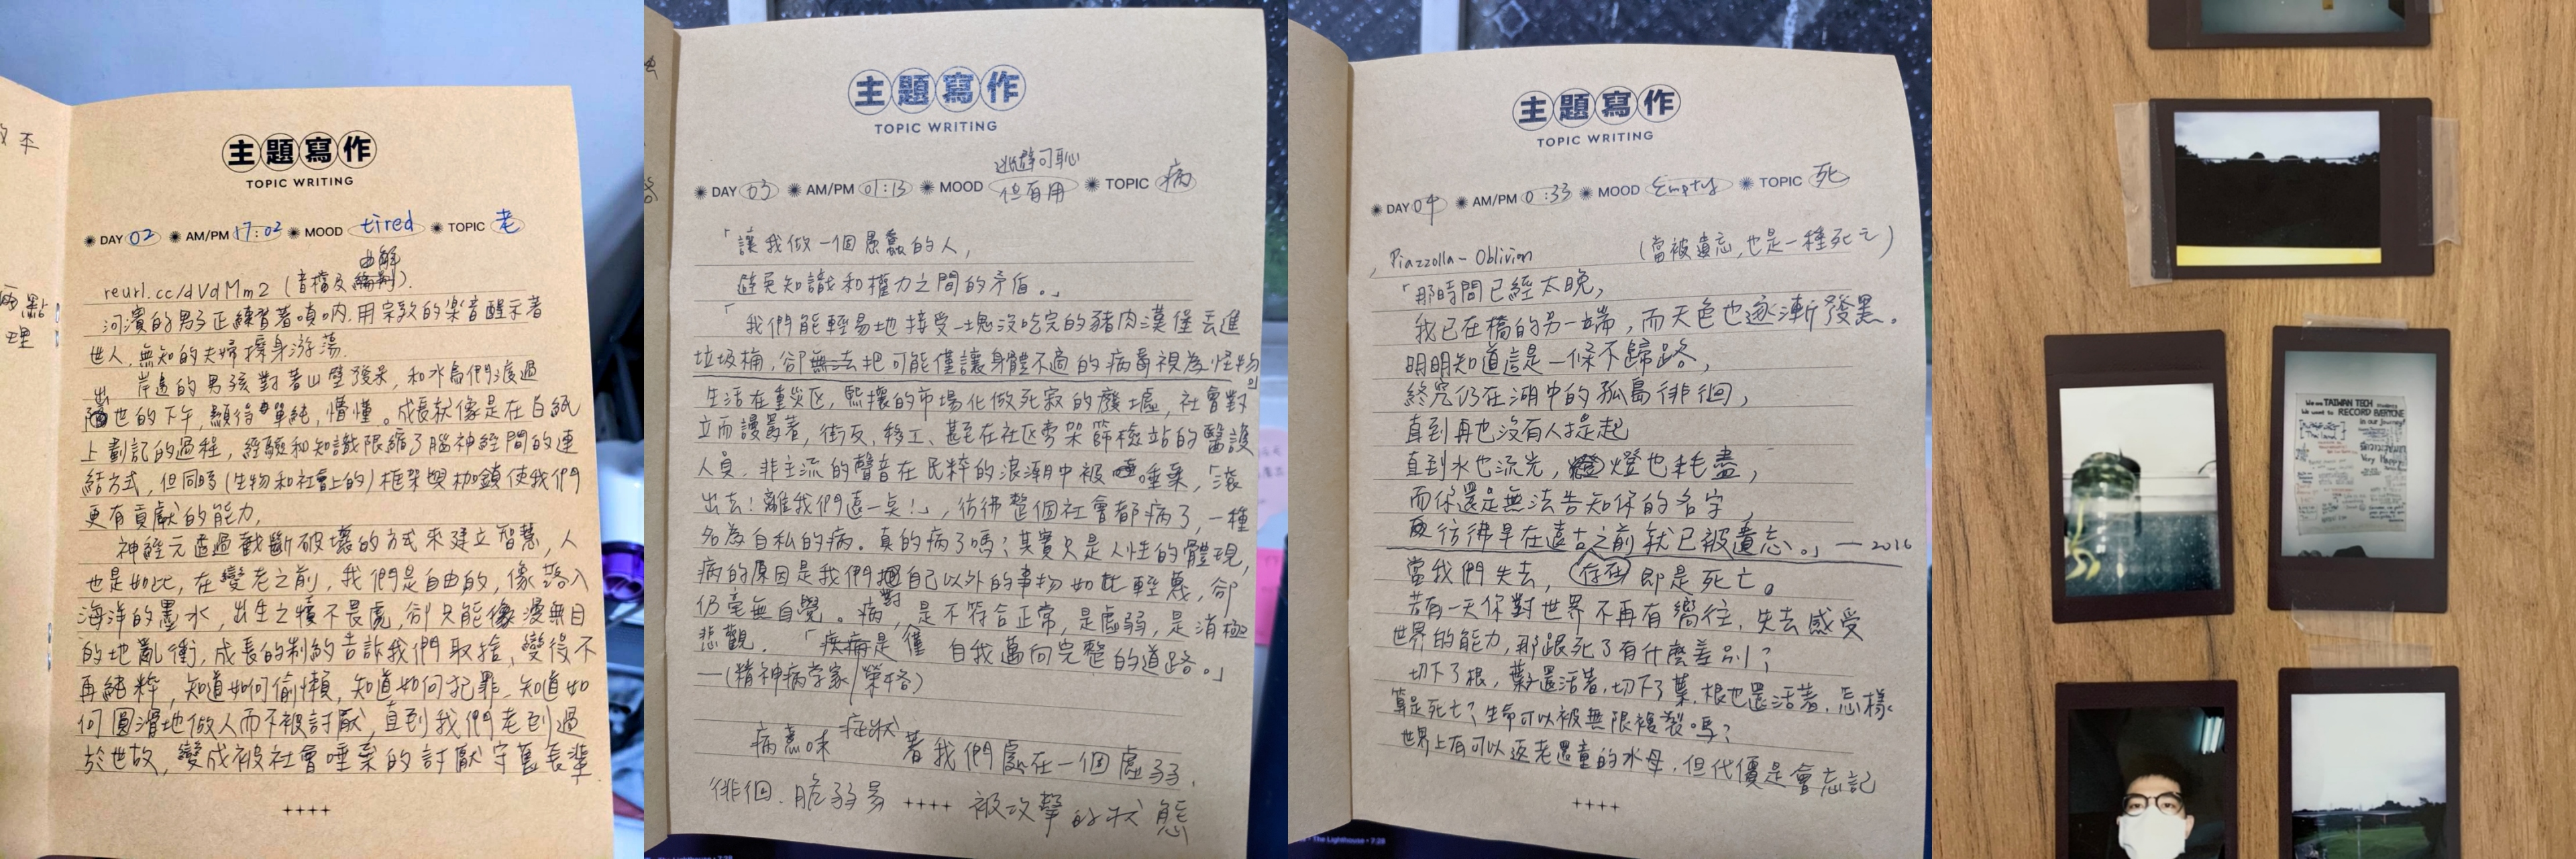 主題寫作
TOPIC WRITING
DAY 02 AM/PM 17:02 MOOD tired TOPIC 老
曲解
reurl.cc/dVdMm2 (音檔及).
河濱的男子正練習著嗩吶,用宗教的楽音醒示著
世人,無知的夫婦擦身游蕩.
岸邊的男孩對著山壁發呆,和水鳥們渡過
出世的下午,顯得單純,懵懂。成長就像是在白紙
上劃記的過程,經驗和知識限縮了腦神經間的連
結方式,但同時(生物和社會上的)框架與枷鎖使我們
更有貢獻的能力,
神經元透過截斷破壞的方式來建立智慧,人
也是如此,在變老之前,我們是自由的,像落入
海洋的墨水,出生之犢不畏虎,卻只能像漫無目
的地亂衝,成長的制約告訴我們取捨,變得不
再純粹,知道如何偷懶,知道如何犯罪,知道如
何圓滑地做人而不被討厭,直到我們老到過
於世故,變成被社會唾棄的討厭守舊長輩.
主題寫作
TOPIC WRITING
DAY 03 AM/PM 01:13 MOOD 逃避可恥但有用 TOPIC 病
「讓我做一個愚蠢的人,
避免知識和權力之間的矛盾。」
「我們能輕易地接受一塊沒吃完的豬肉漢堡丟進
垃圾桶,卻無法把可能僅讓身體不適的病毒視為怪物」
生活在重災区,熙攘的市場化做死寂的廢墟,社會對
立而謾罵著,街友、移工、甚至在社区旁架篩檢站的醫護
人員,非主流的聲音在民粹的浪潮中被唾棄,「滾
出去!離我們遠一點!」,彷彿整個社會都病了,一種
名為自私的病。真的病了嗎?其實只是人性的體現,
病的原因是我們對自己以外的事物如此輕蔑,卻
仍毫無自覺。病,是不符合正常,是虛弱,是消極
悲觀.「疾病是僅 自我邁向完整的道路。」
—(精神病学家/榮格)
病意味 症狀 著我們處在一個虛弱,
徘徊.脆弱易 被攻擊的狀態
主題寫作
TOPIC WRITING
DAY 04 AM/PM 0:33 MOOD Empty TOPIC 死
Piazzolla - Oblivion (當被遺忘,也是一種死亡)
「那時間已經太晚,
我已在橋的另一端,而天色也逐漸發黑。
明明知道這是一條不歸路,
終究仍在湖中的孤島徘徊,
直到再也沒有人提起
直到水也流光,燈也耗盡,
而你還是無法告知你的名字,
彷彿早在遠古之前就已被遺忘。」—2016
當我們失去,存在即是死亡。
若有一天你對世界不再有嚮往,失去感受
世界的能力,那跟死了有什麼差別?
切下了根,葉還活著,切下了葉,根也還活著,怎樣
算是死亡?生命可以被無限複製嗎?
世界上有可以返老還童的水母,但代價是會忘記
The Lighthouse • 7:28
We are TAIWAN TECH
We want to RECORD EVERYONE
in our journey!